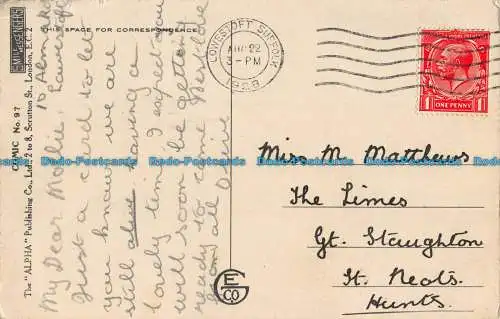 THIS SPACE FOR CORRESPONDENCE
SMILE MESSENGERS
COMIC No. 97
The "ALPHA" Publishing Co., Ltd., 2 to 8, Scrutton St., London, E.C. 2
10 Alma
My Dear Mollie.
Just a card to let
you know we are
still alive having a
lovely time I expect you
will soon be getting
ready to come Best love
from all
LOWESTOFT SUFFOLK
3-PM
1928
ONE PENNY
1 1
Miss M. Matthews
The Limes
Gt. Staughton
St. Neots.
Hunts.
Dado-Postcards Dado-Postcards Dado-Postcards Dado-Postcards